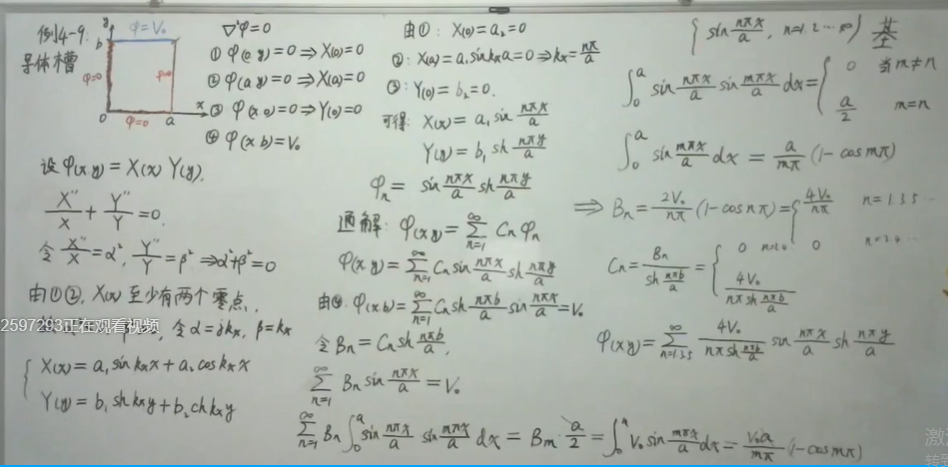 例4-9:
导体槽
y
b
φ=V₀
φ=0
φ=0
0
φ=0
a
x
∇²φ=0
① φ(0 y)=0 ⇒ X(0)=0
② φ(a y)=0 ⇒ X(a)=0
③ φ(x 0)=0 ⇒ Y(0)=0
④ φ(x b)=V₀
设 φ(x y) = X(x) Y(y).
X''/X + Y''/Y = 0.
令 X''/X = α², Y''/Y = β² ⇒ α²+β²=0
由①②, X(x) 至少有两个零点,
2597293正在观看视频
令 α=jkₓ, β=kₓ
X(x) = a₁ sin kₓx + a₂ cos kₓx
Y(y) = b₁ sh kₓy + b₂ ch kₓy
由①: X(0) = a₂ = 0
②: X(a) = a₁ sin kₓa = 0 ⇒ kₓ = nπ/a
③: Y(0) = b₂ = 0.
可得: X(x) = a₁ sin nπx/a
Y(y) = b₁ sh nπy/a
φₙ = sin nπx/a sh nπy/a
通解: φ(x y) = ∑_{n=1}^{∞} Cₙ φₙ
φ(x y) = ∑_{n=1}^{∞} Cₙ sin nπx/a sh nπy/a
由④: φ(x b) = ∑_{n=1}^{∞} Cₙ sh nπb/a sin nπx/a = V₀
令 Bₙ = Cₙ sh nπb/a,
∑_{n=1}^{∞} Bₙ sin nπx/a = V₀
∑_{n=1}^{∞} Bₙ ∫₀^a sin nπx/a sin mπx/a dx = Bₘ · a/2 = ∫₀^a V₀ sin mπx/a dx = V₀a/mπ (1-cos mπ)
{ sin nπx/a, n=1.2 ··· ∞ } 基
∫₀^a sin nπx/a sin mπx/a dx = { 0 当m≠n
a/2 m=n
∫₀^a sin mπx/a dx = a/mπ (1-cos mπ)
⇒ Bₙ = 2V₀/nπ (1-cos nπ) = { 4V₀/nπ n=1.3.5 ···
0
Cₙ = Bₙ / sh nπb/a = { 0
4V₀ / nπ sh nπb/a
φ(x y) = ∑_{n=1.3.5}^{∞} 4V₀ / nπ sh nπb/a sin nπx/a sh nπy/a
激